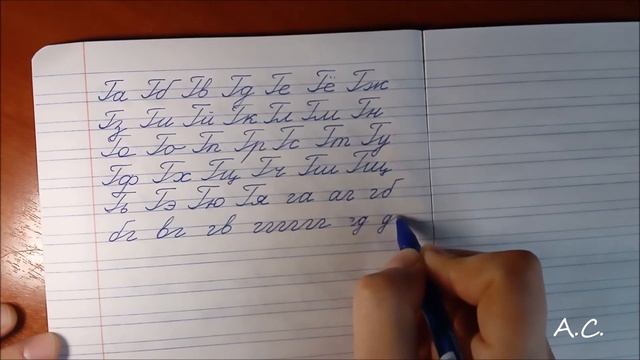 Га Гб Гв Гд Ге Гё Гж
Гз Ги Гй Гк Гл Гм Гн
Го Го Гп Гр Гс Гт Гу
Гф Гх Гц Гч Гш Гщ
Гь Гэ Гю Гя га аг гб
бг вг гв ггггг гд д
A.C.